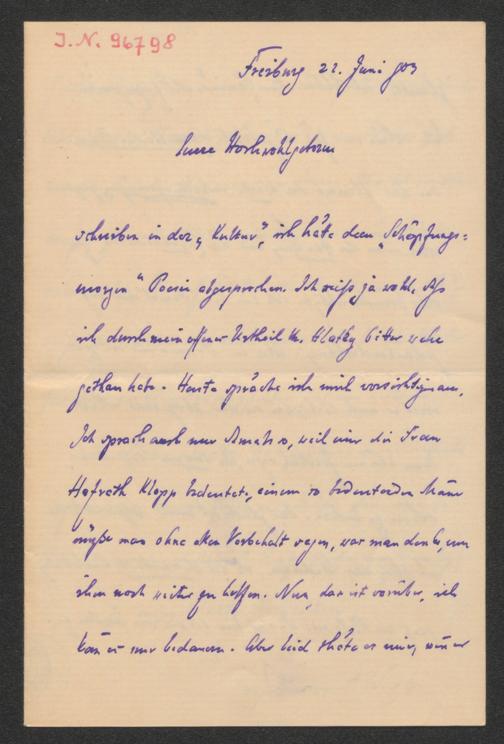 J.N. 96798
Freiburg 22. Juni 903
Euere Hochwohlgeboren
schreiben in der „Kultur", ich hätte dem „Schöpfungs-
morgen" Poesie abgesprochen. Ich weiß ja wohl, daß
ich durch mein offenes Urtheil Hr. Hlatky bitter wehe
gethan habe. Heute spräche ich mich vorsichtiger aus,
Ich sprach auch nur damals so, weil mir die Frau
Hofrath Klopp bedeutete, einem so bedeutenden Manne
müße man ohne allen Vorbehalt sagen, was man denke, um
ihm noch weiter zu helfen. Nun, das ist vorüber, ich
kann es nur bedauern. Aber leid thäte es mir, wenn er